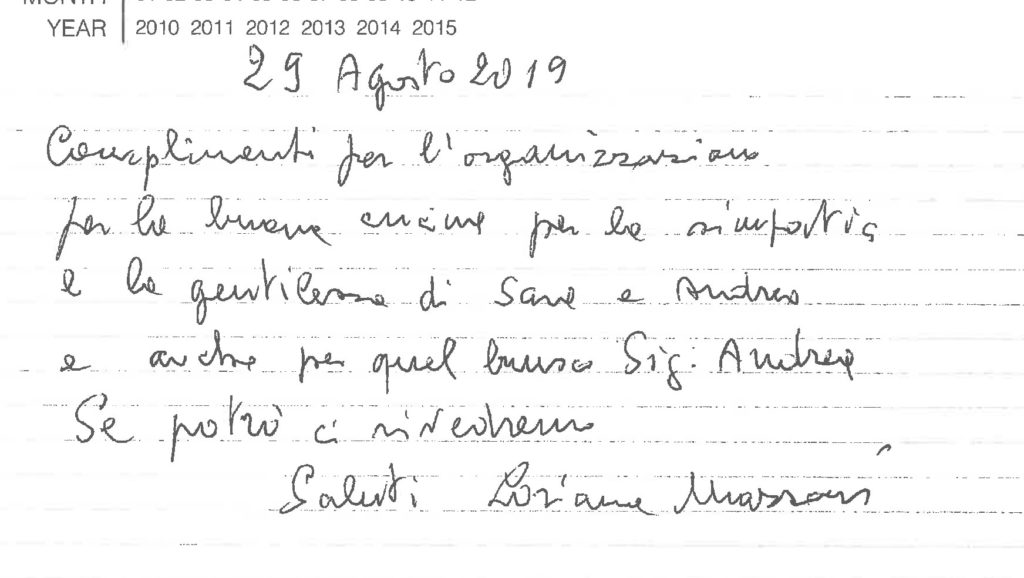 YEAR 2010 2011 2012 2013 2014 2015
29 Agosto 2019
Complimenti per l'organizzazione
per la buona cucina per la simpatia
e la gentilezza di Sara e Andrea
e anche per quel Sig. Andrea
Se potrò ci rivedremo
Saluti Loriana